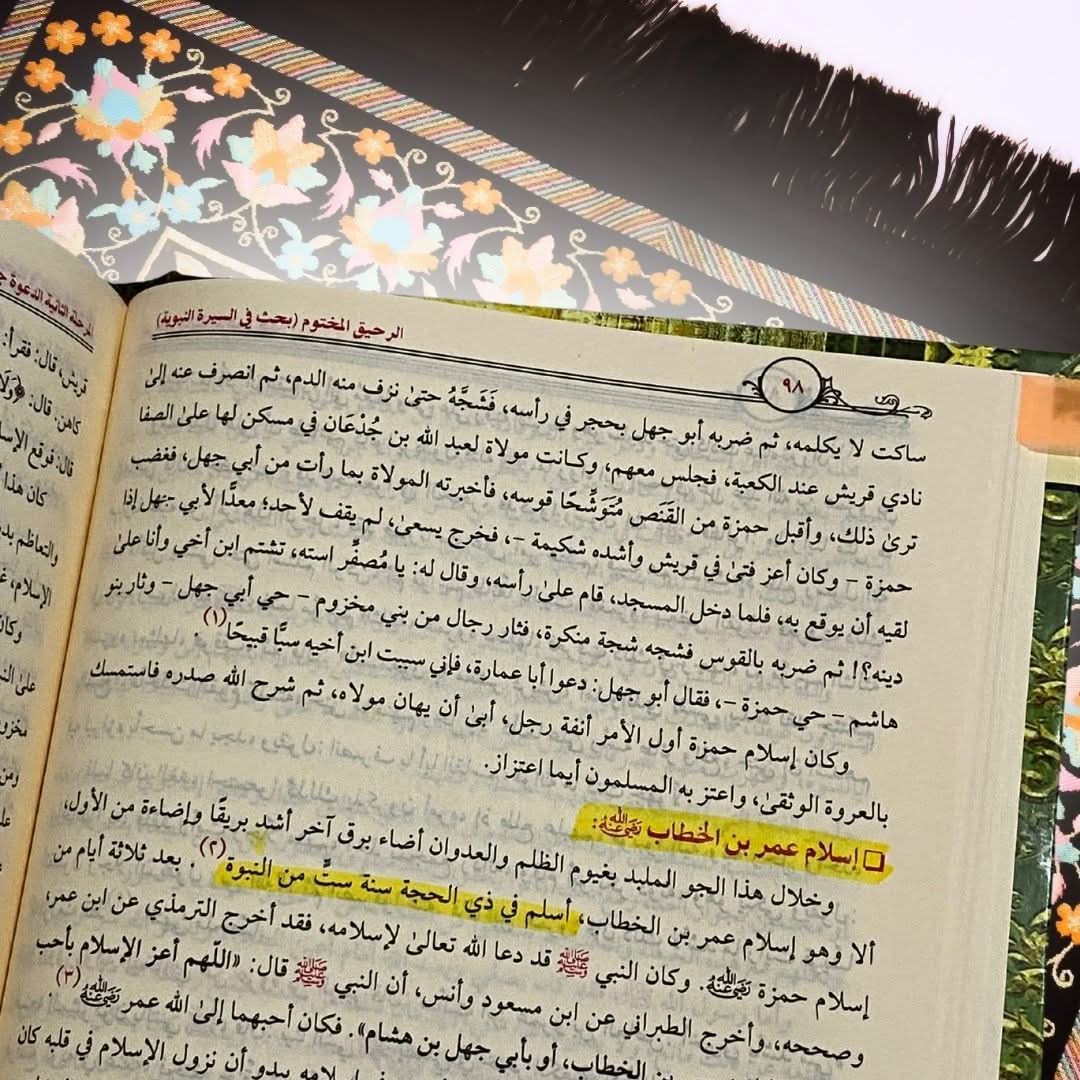 الرحيق المختوم (بحث في السيرة النبوية)
٩٨
ساكت لا يكلمه، ثم ضربه أبو جهل بحجر في رأسه، فَشَجَّهُ حتىٰ نزف منه الدم، ثم انصرف عنه إلىٰ
نادي قريش عند الكعبة، فجلس معهم، وكانت مولاة لعبد الله بن جُدْعَان في مسكن لها علىٰ الصفا
ترىٰ ذلك، وأقبل حمزة من القَنَص مُتَوَشِّحًا قوسه، فأخبرته المولاة بما رأت من أبي جهل، فغضب
حمزة - وكان أعز فتىٰ في قريش وأشده شكيمة -، فخرج يسعىٰ، لم يقف لأحد؛ معدًّا لأبي جهل إذا
لقيه أن يوقع به، فلما دخل المسجد، قام علىٰ رأسه، وقال له: يا مُصفِّر استه، تشتم ابن أخي وأنا علىٰ
دينه؟! ثم ضربه بالقوس فشجه شجة منكرة، فثار رجال من بني مخزوم - حي أبي جهل - وثار بنو
هاشم - حي حمزة -، فقال أبو جهل: دعوا أبا عمارة، فإني سببت ابن أخيه سبًّا قبيحًا(١).
وكان إسلام حمزة أول الأمر أنفة رجل، أبىٰ أن يهان مولاه، ثم شرح الله صدره فاستمسك
بالعروة الوثقىٰ، واعتز به المسلمون أيما اعتزاز.
❑ إسلام عمر بن الخطاب رضي الله عنه:
وخلال هذا الجو الملبد بغيوم الظلم والعدوان أضاء برق آخر أشد بريقًا وإضاءة من الأول،
ألا وهو إسلام عمر بن الخطاب، أسلم في ذي الحجة سنة ستٍّ من النبوة(٢). بعد ثلاثة أيام من
إسلام حمزة رضي الله عنه. وكان النبي ﷺ قد دعا الله تعالىٰ لإسلامه، فقد أخرج الترمذي عن ابن عمر،
وصححه، وأخرج الطبراني عن ابن مسعود وأنس، أن النبي ﷺ قال: «اللّهم أعز الإسلام بأحب
بن الخطاب، أو بأبي جهل بن هشام». فكان أحبهما إلىٰ الله عمر رضي الله عنه(٣).
يبدو أن نزول الإسلام في قلبه كان
المرحلة الثانية الدعوة
قريش، قال: فقرأ:
كاهن. قال:
قال: فوقع
كان هذا
والتعاظم
الإسلام،
وكان
علىٰ
ومن